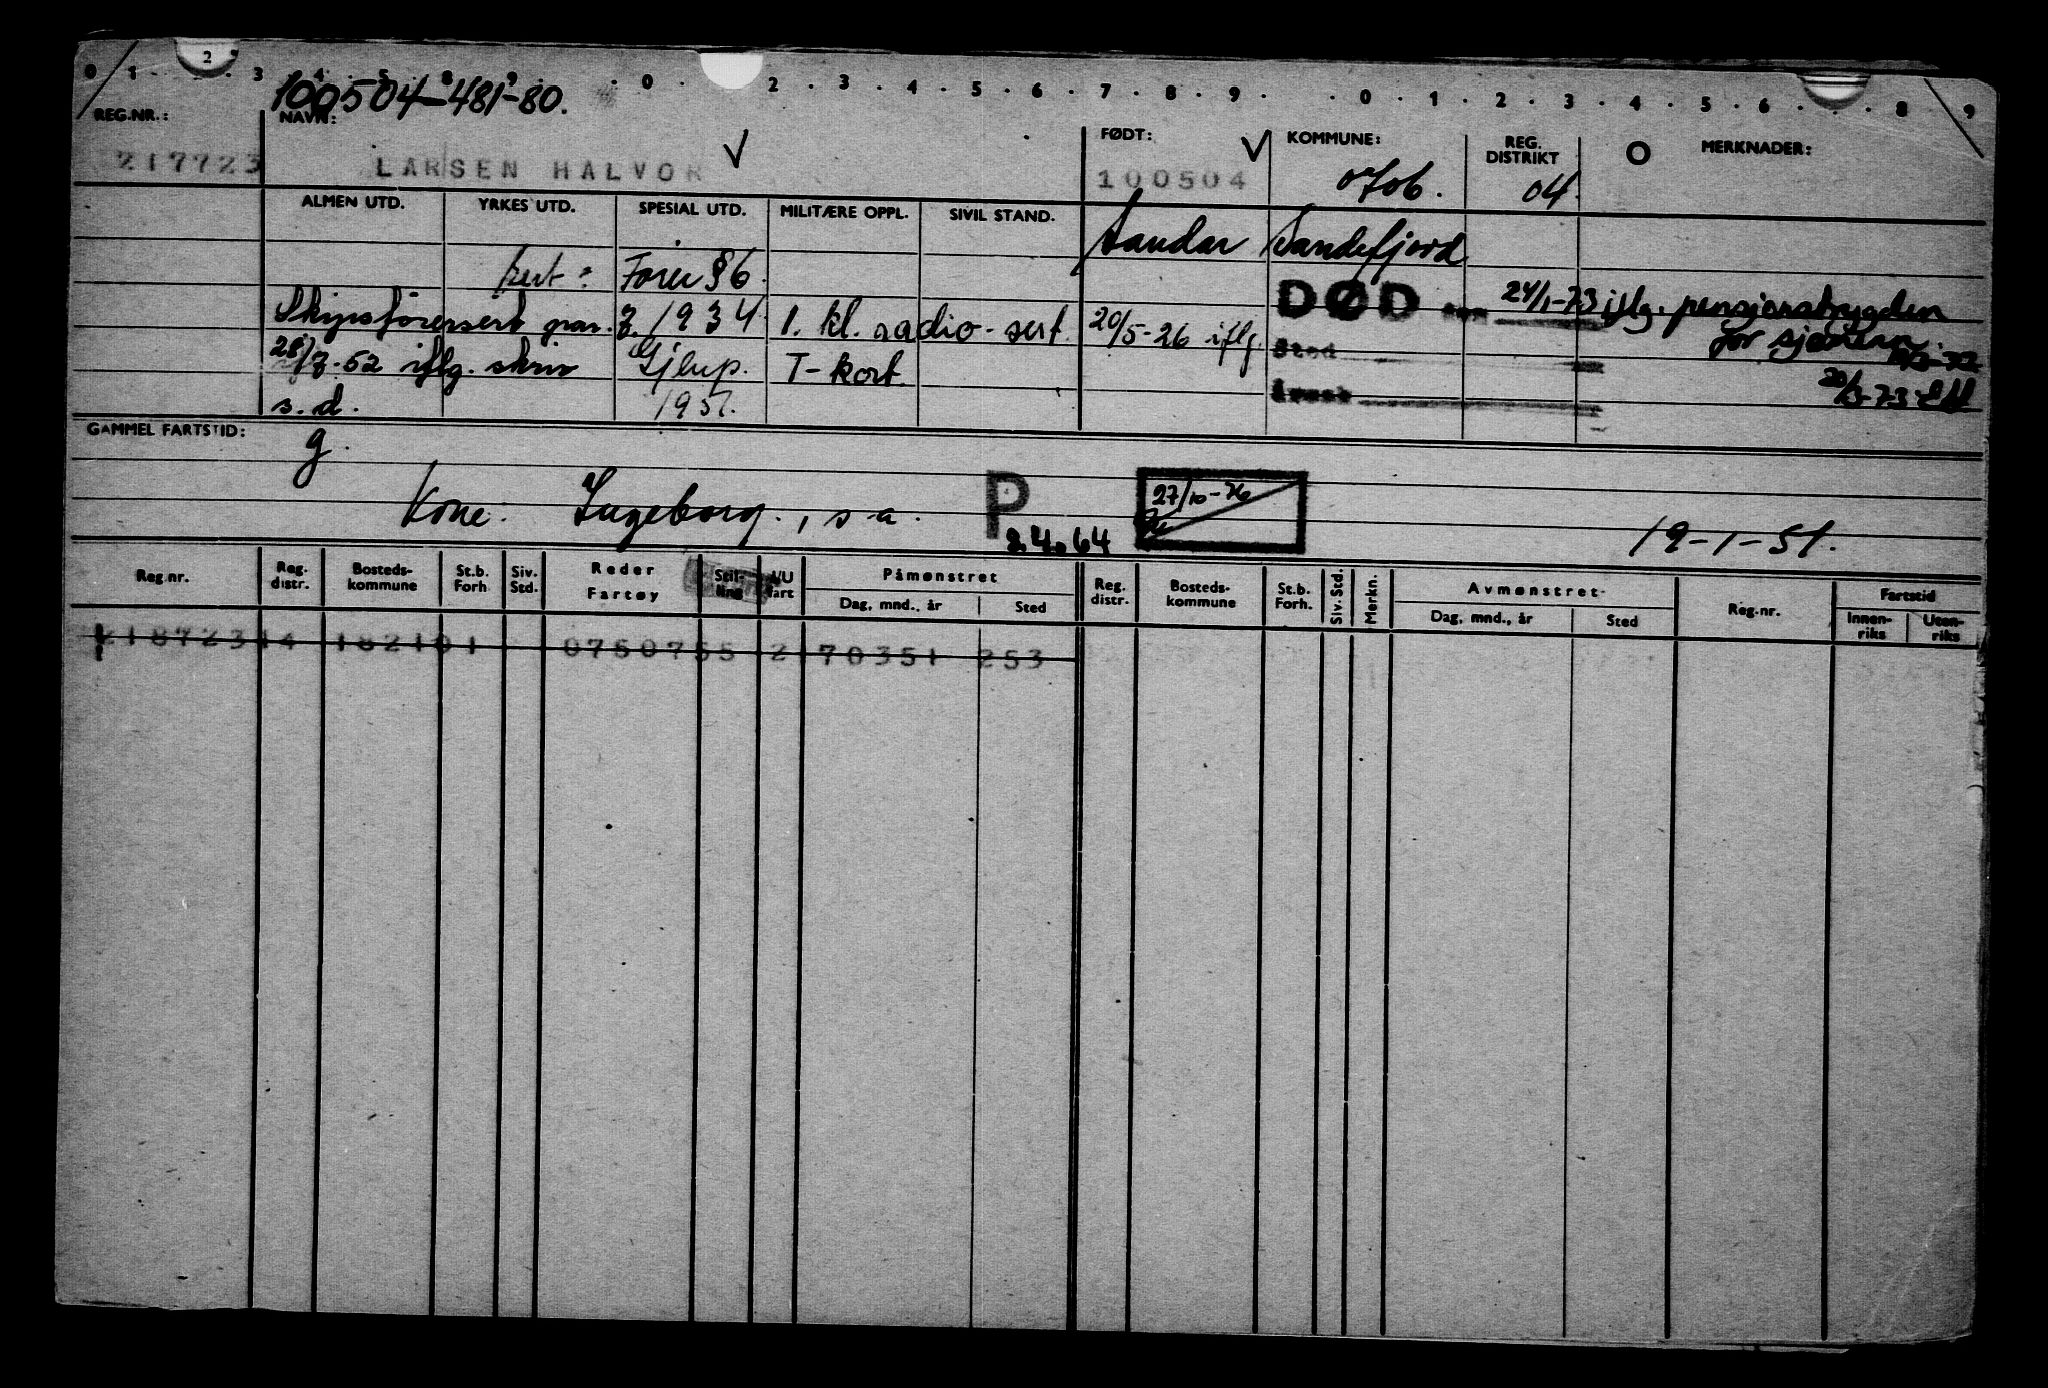 0 1 2 3 4 5 8 9 0 2 3 4 5 6 7 8 9 0 1 2 3 4 5 6 8 9
100504-481-80.
REG.NR.: NAVN: FØDT: KOMMUNE: REG. DISTRIKT O MERKNADER:
217723 LARSEN HALVOR 100504 0706. 04
ALMEN UTD. YRKES UTD. SPESIAL UTD. MILITÆRE OPPL. SIVIL STAND. Sandar Sandefjord
sert: Fører §6.
DØD 24/1-73 iflg. pensjonstrygden
Skipsførersert 1934 1. kl. radio-sert. 20/5-26 iflg. for sjømenn.
28/7-52 iflg. skriv T-kort. Sted
s.d. 1951. Årsak 20/3-73 EM
GAMMEL FARTSTID: g.
Kone: Ingeborg., s.a. P 27/10-76
2.4.64 19-1-51.
Reg.nr. Reg. distr. Bosteds-kommune St.b. Forh. Siv. Std. Reder Fartøy Stilling I/U fart Påmønstret Dag, mnd., år Sted Reg. distr. Bosteds-kommune St.b. Forh. Siv. Std. Merkn. Avmønstret Dag, mnd., år Sted Reg.nr. Fartstid Innenriks Utenriks
21872314 182101 0750755 2 170351 253